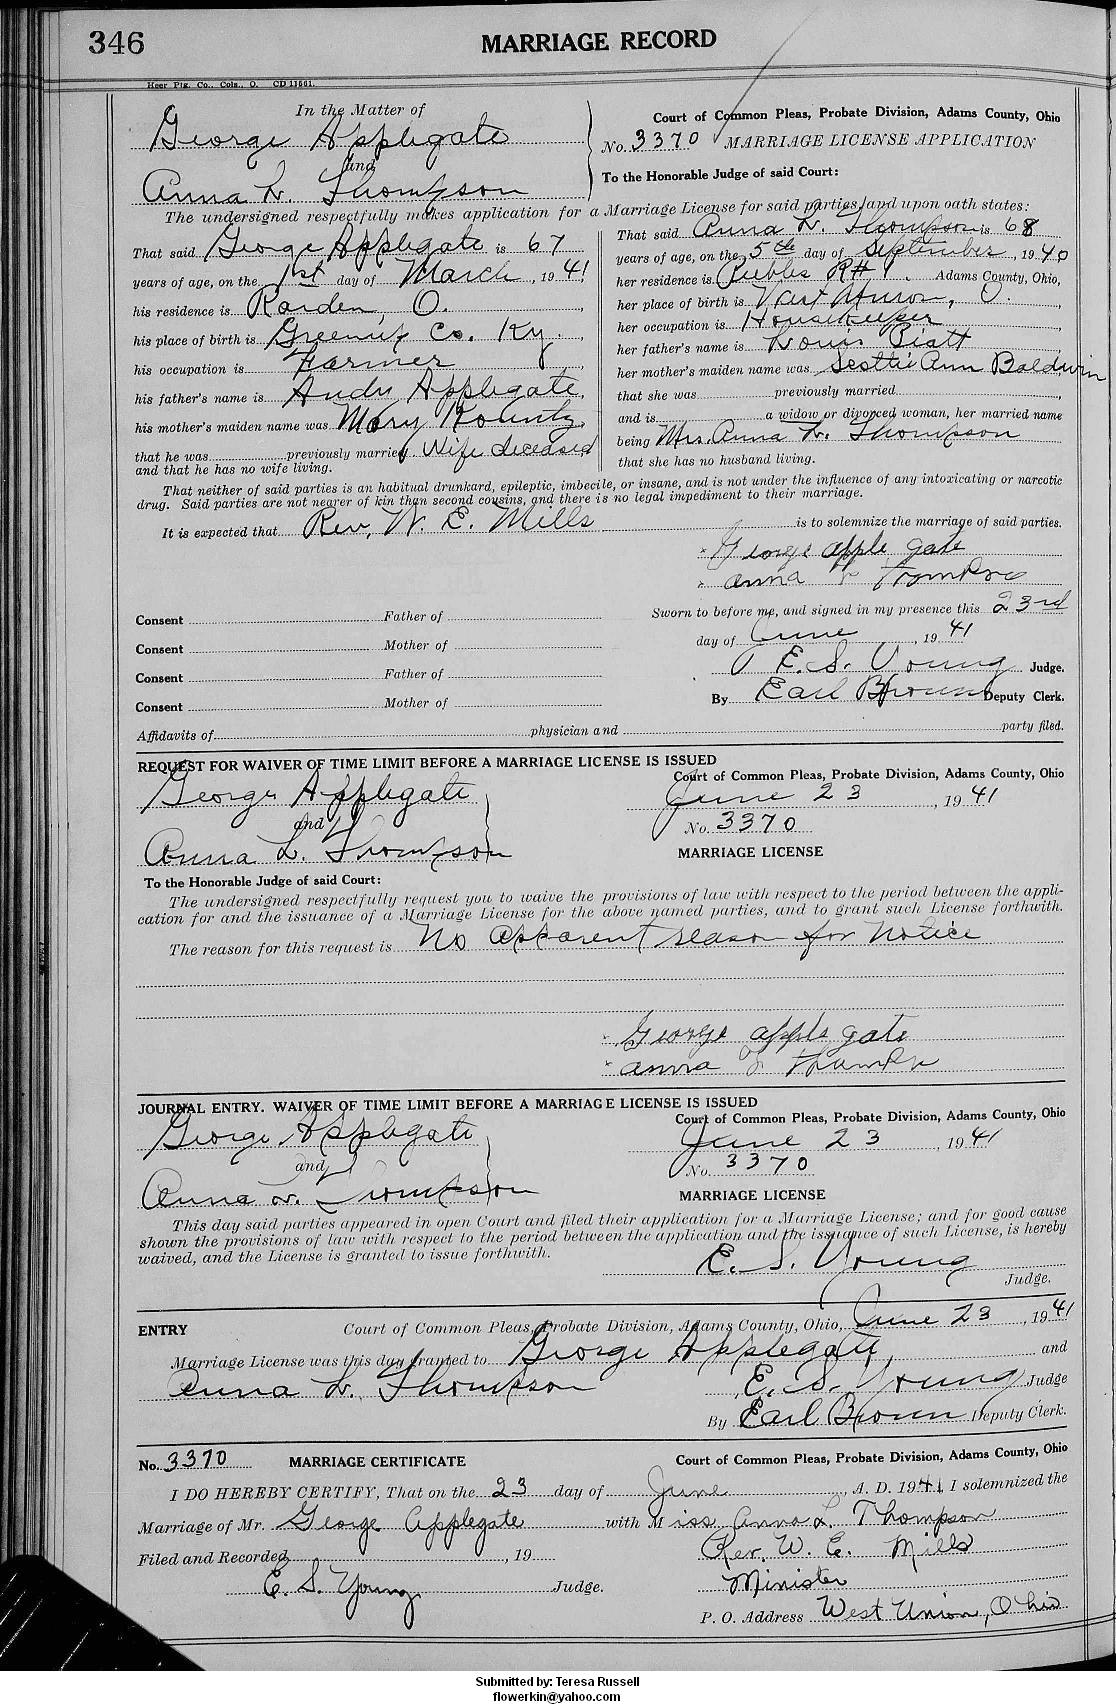 346
MARRIAGE RECORD
Heer Ptg. Co., Cols., O. CD 11661.
In the Matter of
George Applegate
and
Anna L. Thompson
Court of Common Pleas, Probate Division, Adams County, Ohio
No. 3370 MARRIAGE LICENSE APPLICATION
To the Honorable Judge of said Court:
The undersigned respectfully makes application for a Marriage License for said parties, and upon oath states:
That said George Applegate is 67
years of age, on the 1st day of March, 1941
his residence is Rarden, O.
his place of birth is Greenup Co. Ky.
his occupation is Farmer
his father's name is Andy Applegate
his mother's maiden name was Mary
that he was previously married Wife deceased
and that he has no wife living.
That said Anna L. Thompson is 68
years of age, on the 5th day of September, 1940
her residence is Peebles R#1, Adams County, Ohio,
her place of birth is O.
her occupation is Housekeeper
her father's name is Louis Piatt
her mother's maiden name was Ann Baldwin
that she was previously married
and is a widow or divorced woman, her married name
being Mrs. Anna L. Thompson
that she has no husband living.
That neither of said parties is an habitual drunkard, epileptic, imbecile, or insane, and is not under the influence of any intoxicating or narcotic
drug. Said parties are not nearer of kin than second cousins, and there is no legal impediment to their marriage.
It is expected that Rev. W. E. Mills is to solemnize the marriage of said parties.
George apple gate
anna L
Consent Father of
Sworn to before me, and signed in my presence this 23rd
Consent Mother of
day of June, 1941
Consent Father of
E. S. Young Judge.
Consent Mother of
By Earl Brown Deputy Clerk.
Affidavits of physician and party filed.
REQUEST FOR WAIVER OF TIME LIMIT BEFORE A MARRIAGE LICENSE IS ISSUED
George Applegate
and
Anna L. Thompson
Court of Common Pleas, Probate Division, Adams County, Ohio
June 23, 1941
No. 3370
MARRIAGE LICENSE
To the Honorable Judge of said Court:
The undersigned respectfully request you to waive the provisions of law with respect to the period between the appli-
cation for and the issuance of a Marriage License for the above named parties, and to grant such License forthwith.
The reason for this request is No apparent reason for notice
George apple gate
anna L
JOURNAL ENTRY. WAIVER OF TIME LIMIT BEFORE A MARRIAGE LICENSE IS ISSUED
George Applegate
and
Anna L. Thompson
Court of Common Pleas, Probate Division, Adams County, Ohio
June 23, 1941
No. 3370
MARRIAGE LICENSE
This day said parties appeared in open Court and filed their application for a Marriage License; and for good cause
shown the provisions of law with respect to the period between the application and the issuance of such License, is hereby
waived, and the License is granted to issue forthwith.
E. S. Young
Judge.
ENTRY Court of Common Pleas, Probate Division, Adams County, Ohio, June 23, 1941
Marriage License was this day granted to George Applegate, and
Anna L. Thompson E. S. Young Judge
By Earl Brown Deputy Clerk.
No. 3370 MARRIAGE CERTIFICATE Court of Common Pleas, Probate Division, Adams County, Ohio
I DO HEREBY CERTIFY, That on the 23 day of June, A. D. 1941 I solemnized the
Marriage of Mr. George Applegate with Miss Anna L. Thompson
Filed and Recorded, 19 Rev. W. E. Mills
E. S. Young Judge. Minister
P. O. Address West Union, Ohio
Submitted by: Teresa Russell
flowerkin@yahoo.com